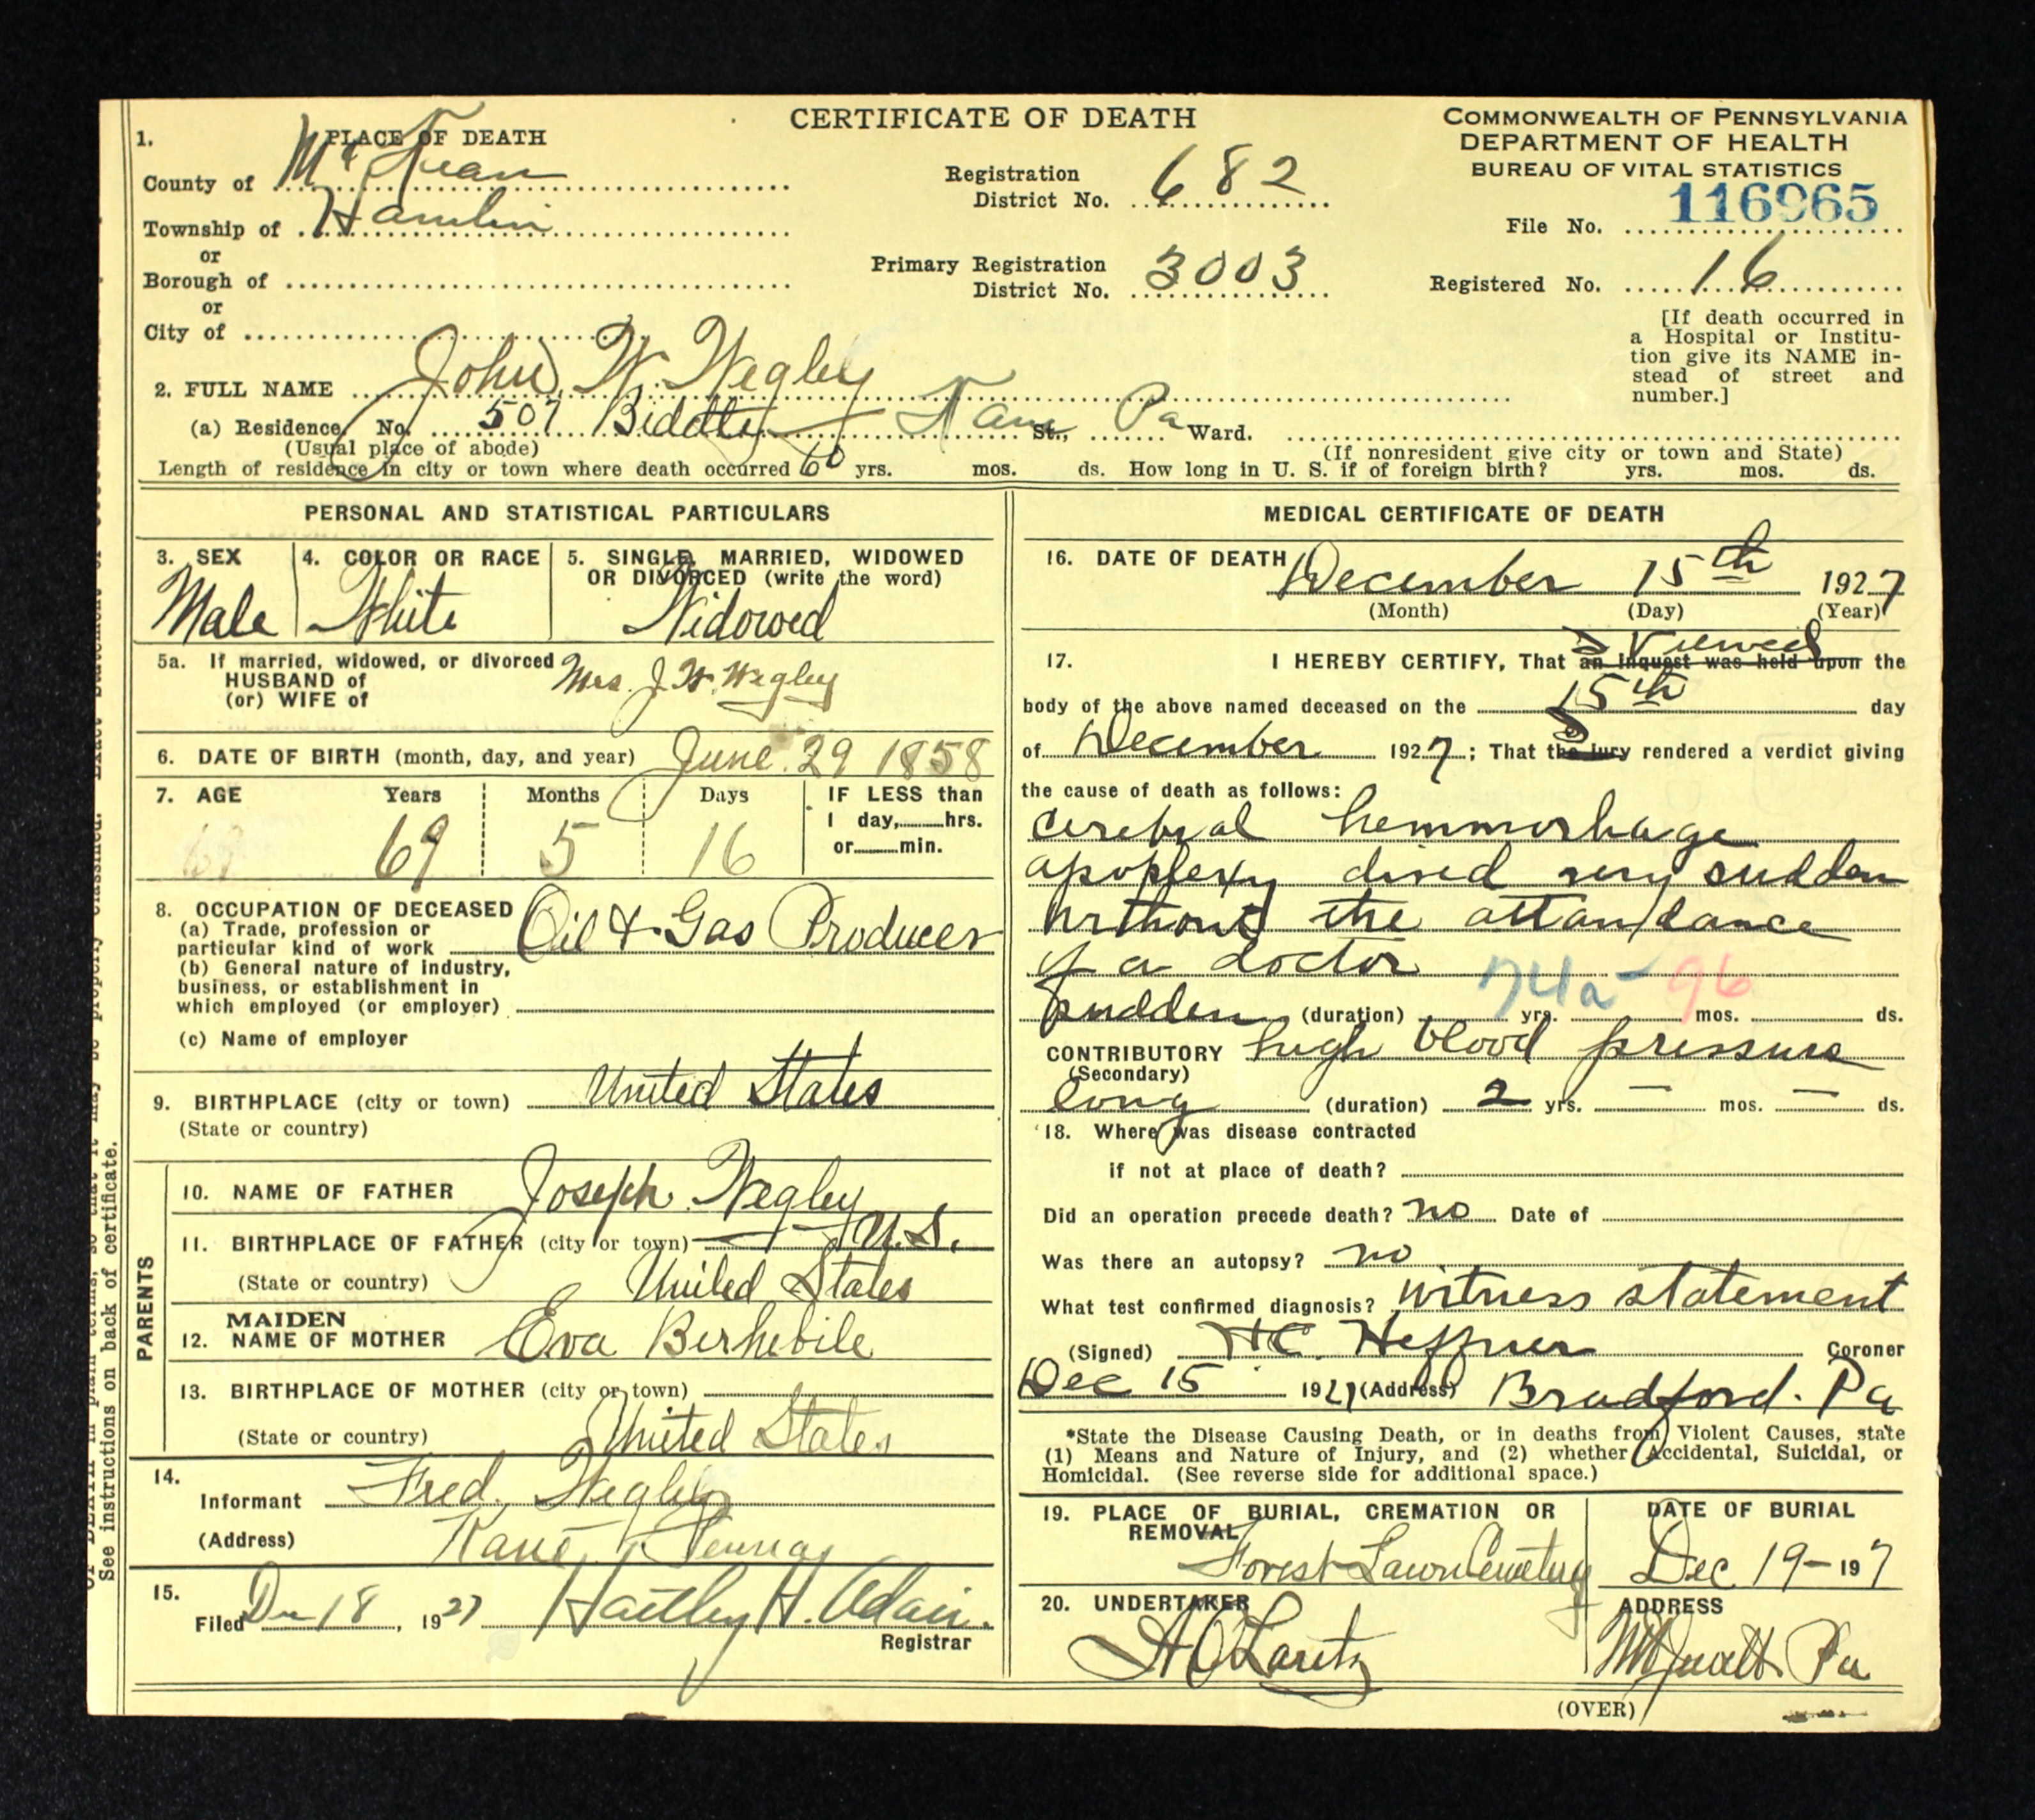 CERTIFICATE OF DEATH
COMMONWEALTH OF PENNSYLVANIA
DEPARTMENT OF HEALTH
BUREAU OF VITAL STATISTICS
1. PLACE OF DEATH
County of McKean
Township of Hamlin
or
Borough of
or
City of
Registration District No. 682
Primary Registration District No. 3003
File No. 116965
Registered No. 16
[If death occurred in
a Hospital or Institu-
tion give its NAME in-
stead of street and
number.]
2. FULL NAME John W. Wegley
(a) Residence, No. 507 Kane St., Pa Ward.
(Usual place of abode) (If nonresident give city or town and State)
Length of residence in city or town where death occurred 60 yrs. mos. ds. How long in U. S. if of foreign birth? yrs. mos. ds.
PERSONAL AND STATISTICAL PARTICULARS
3. SEX Male
4. COLOR OR RACE White
5. SINGLE, MARRIED, WIDOWED
OR DIVORCED (write the word)
Widowed
5a. If married, widowed, or divorced
HUSBAND of
(or) WIFE of
Mrs. J. W. Wegley
6. DATE OF BIRTH (month, day, and year) June 29 1858
7. AGE Years Months Days IF LESS than
1 day, hrs.
or min.
69 5 16
8. OCCUPATION OF DECEASED
(a) Trade, profession or
particular kind of work Oil & Gas Producer
(b) General nature of industry,
business, or establishment in
which employed (or employer)
(c) Name of employer
9. BIRTHPLACE (city or town) United States
(State or country)
PARENTS
10. NAME OF FATHER Joseph Wegley
11. BIRTHPLACE OF FATHER (city or town) U.S.
(State or country) United States
12. MAIDEN NAME OF MOTHER Eva
13. BIRTHPLACE OF MOTHER (city or town)
(State or country) United States
14.
Informant Fred. Wegley
(Address) Kane, Penna
15.
Filed Dec 18, 1927 Hartley H. Adair.
Registrar
MEDICAL CERTIFICATE OF DEATH
16. DATE OF DEATH December 15th 1927
(Month) (Day) (Year)
17. I HEREBY CERTIFY, That an inquest was held upon I Viewed the
body of the above named deceased on the 15th day
of December 1927; That the jury I rendered a verdict giving
the cause of death as follows:
cerebral hemmorhage
apoplexy dived very sudden
without the attandance
of a doctor 74a 96
sudden (duration) yrs. mos. ds.
CONTRIBUTORY high blood pressure
(Secondary)
long (duration) 2 yrs. — mos. — ds.
18. Where was disease contracted
if not at place of death?
Did an operation precede death? no Date of
Was there an autopsy? no
What test confirmed diagnosis? witness statement
(Signed) H C. Heffner Coroner
Dec 15 1927 (Address) Bradford. Pa
*State the Disease Causing Death, or in deaths from Violent Causes, state
(1) Means and Nature of Injury, and (2) whether Accidental, Suicidal, or
Homicidal. (See reverse side for additional space.)
19. PLACE OF BURIAL, CREMATION OR
REMOVAL
Forest Lawn Cemetery
DATE OF BURIAL
Dec 19 – 197
20. UNDERTAKER
ADDRESS
Mt Jewett Pa
(OVER)
See instructions on back of certificate.